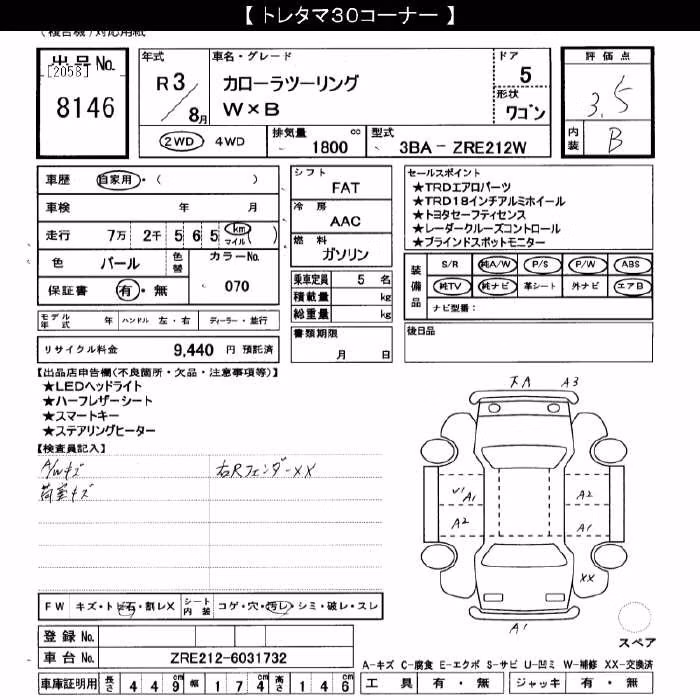 【 トレタマ30コーナー 】
(複合機)対応用紙
出品No.
[2058]
8146
年式
R 3
8 月
車名・グレード
カローラツーリング
W×B
ドア
5
形状
ワゴン
評価点
3.5
内装
B
2WD 4WD
排気量
1800 cc
型式
3BA - ZRE212W
車歴 自家用・( )
車検 年 月
走行 7万 2千 5 6 5 km マイル ( )
色 パール 色替 カラーNo.
070
保証書 有・無
シフト
FAT
冷房
AAC
燃料
ガソリン
乗車定員 5 名
積載量 kg
総重量 kg
書類期限
月 日
セールスポイント
★TRDエアロパーツ
★TRD18インチアルミホイール
★トヨタセーフティセンス
★レーダークルーズコントロール
★ブラインドスポットモニター
装備品
S/R 純A/W P/S P/W ABS
純TV 純ナビ 革シート 外ナビ エアB
ナビ型番:
モデル年式 年 ハンドル 左・右 ディーラー・並行
リサイクル料金 9,440 円 預託済
後日品
【出品店申告欄(不良箇所・欠品・注意事項等)】
★LEDヘッドライト
★ハーフレザーシート
★スマートキー
★ステアリングヒーター
【検査員記入】
A/Wキズ 右Rフェンダー××
荷室キズ
A3
A1
A2
A2
A1
XX
A1
FW キズ・トビ石・割レX シート内装 コゲ・穴・汚レ・シミ・破レ・スレ
スペア
登録No.
車台No. ZRE212-6031732
A-キズ C-腐食 E-エクボ S-サビ U-凹ミ W-補修 XX-交換済
車庫証明用 長さ 4 4 9 cm 幅 1 7 4 cm 高さ 1 4 6 cm
工具 有・無 ジャッキ 有・無